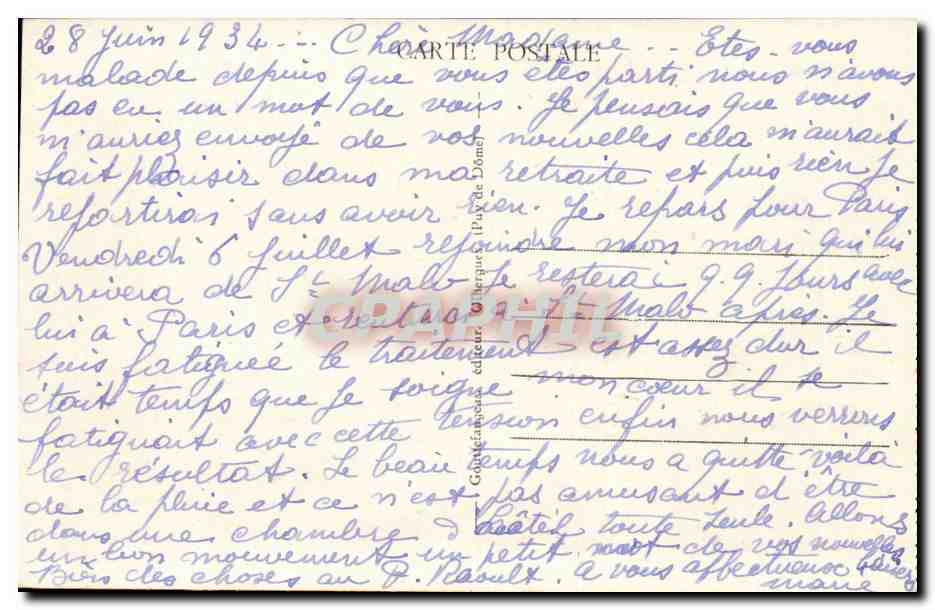 28 Juin 1934 --- Chère Madame -- Etes-vous
CARTE POSTALE
malade depuis que vous êtes parti nous n'avons
pas eu un mot de vous. Je pensais que vous
m'auriez envoyé de vos nouvelles cela m'aurait
fait plaisir dans ma retraite et puis rien je
repartirai sans avoir rien. Je repars pour Paris
Vendredi 6 Juillet rejoindre mon mari qui lui
arrivera de St Malo Je resterai q.q. Jours avec
lui à Paris et rentrerai à St Malo après. Je
suis fatiguée le traitement est assez dur il
était temps que je soigne mon coeur il se
fatiguait avec cette tension enfin nous verrons
le résultat. Le beau temps nous a quitté voilà
de la pluie et ce n'est pas amusant d'être
dans une chambre d'hôtel toute seule. Allons
un bon mouvement un petit mot de vos nouvelles
Bien des choses au P. Raoult. A vous affectueux baisers
Marie
Gouttefangeas, éditeur, Olliergues (Puy de Dôme)
CRAPHIL